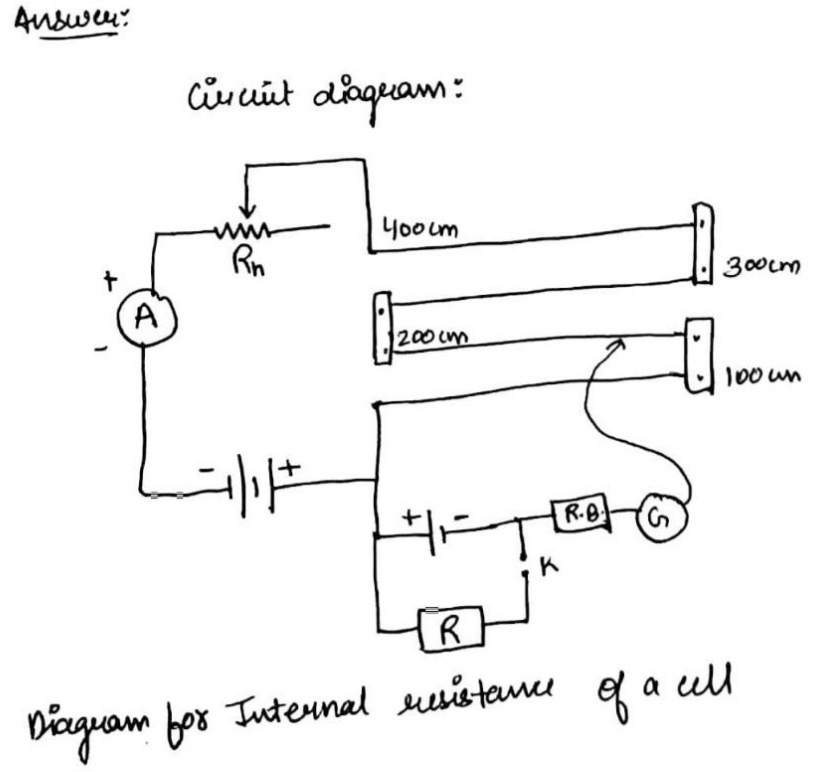 Answer:
Circuit diagram:
400cm
Rh
300cm
+
A
-
200cm
100cm
- +
+ -
R.B.
G
K
R
Diagram for Internal resistance of a cell